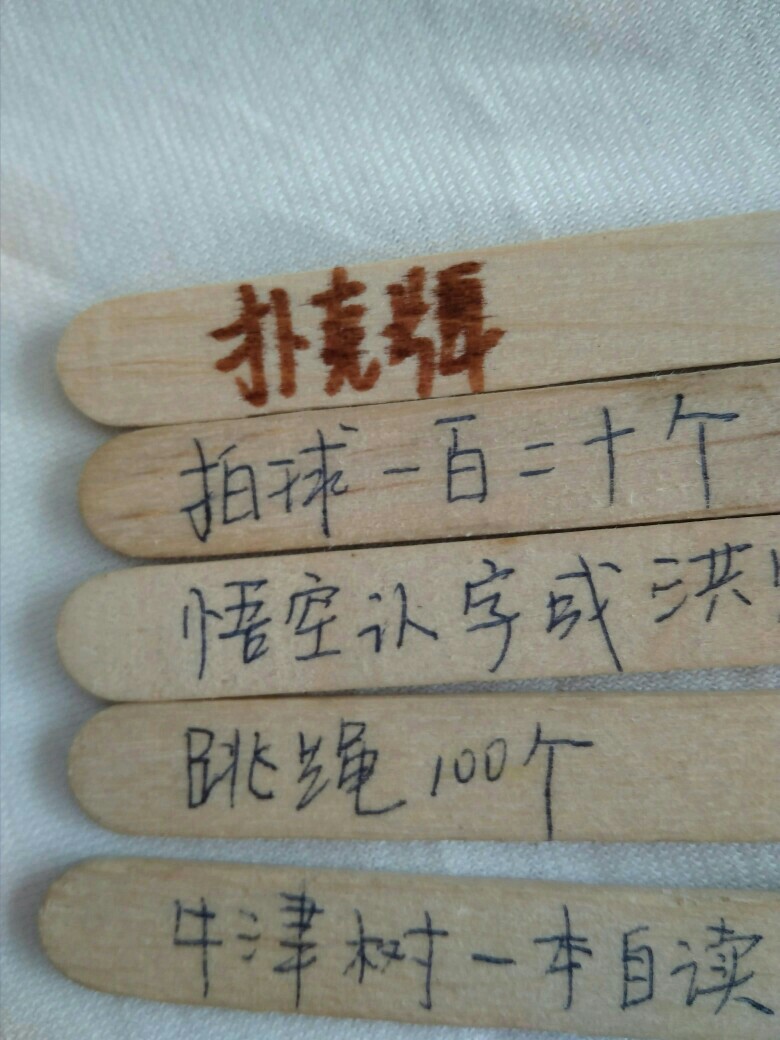 扑克
拍球一百二十个
悟空认字或洪
跳绳100个
牛津树一本自读